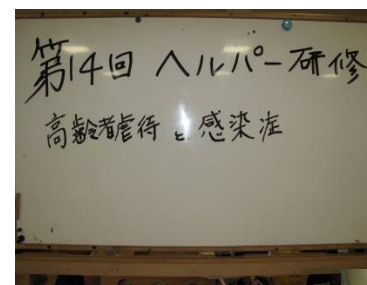 第14回 ヘルパー研修
高齢者虐待と感染症